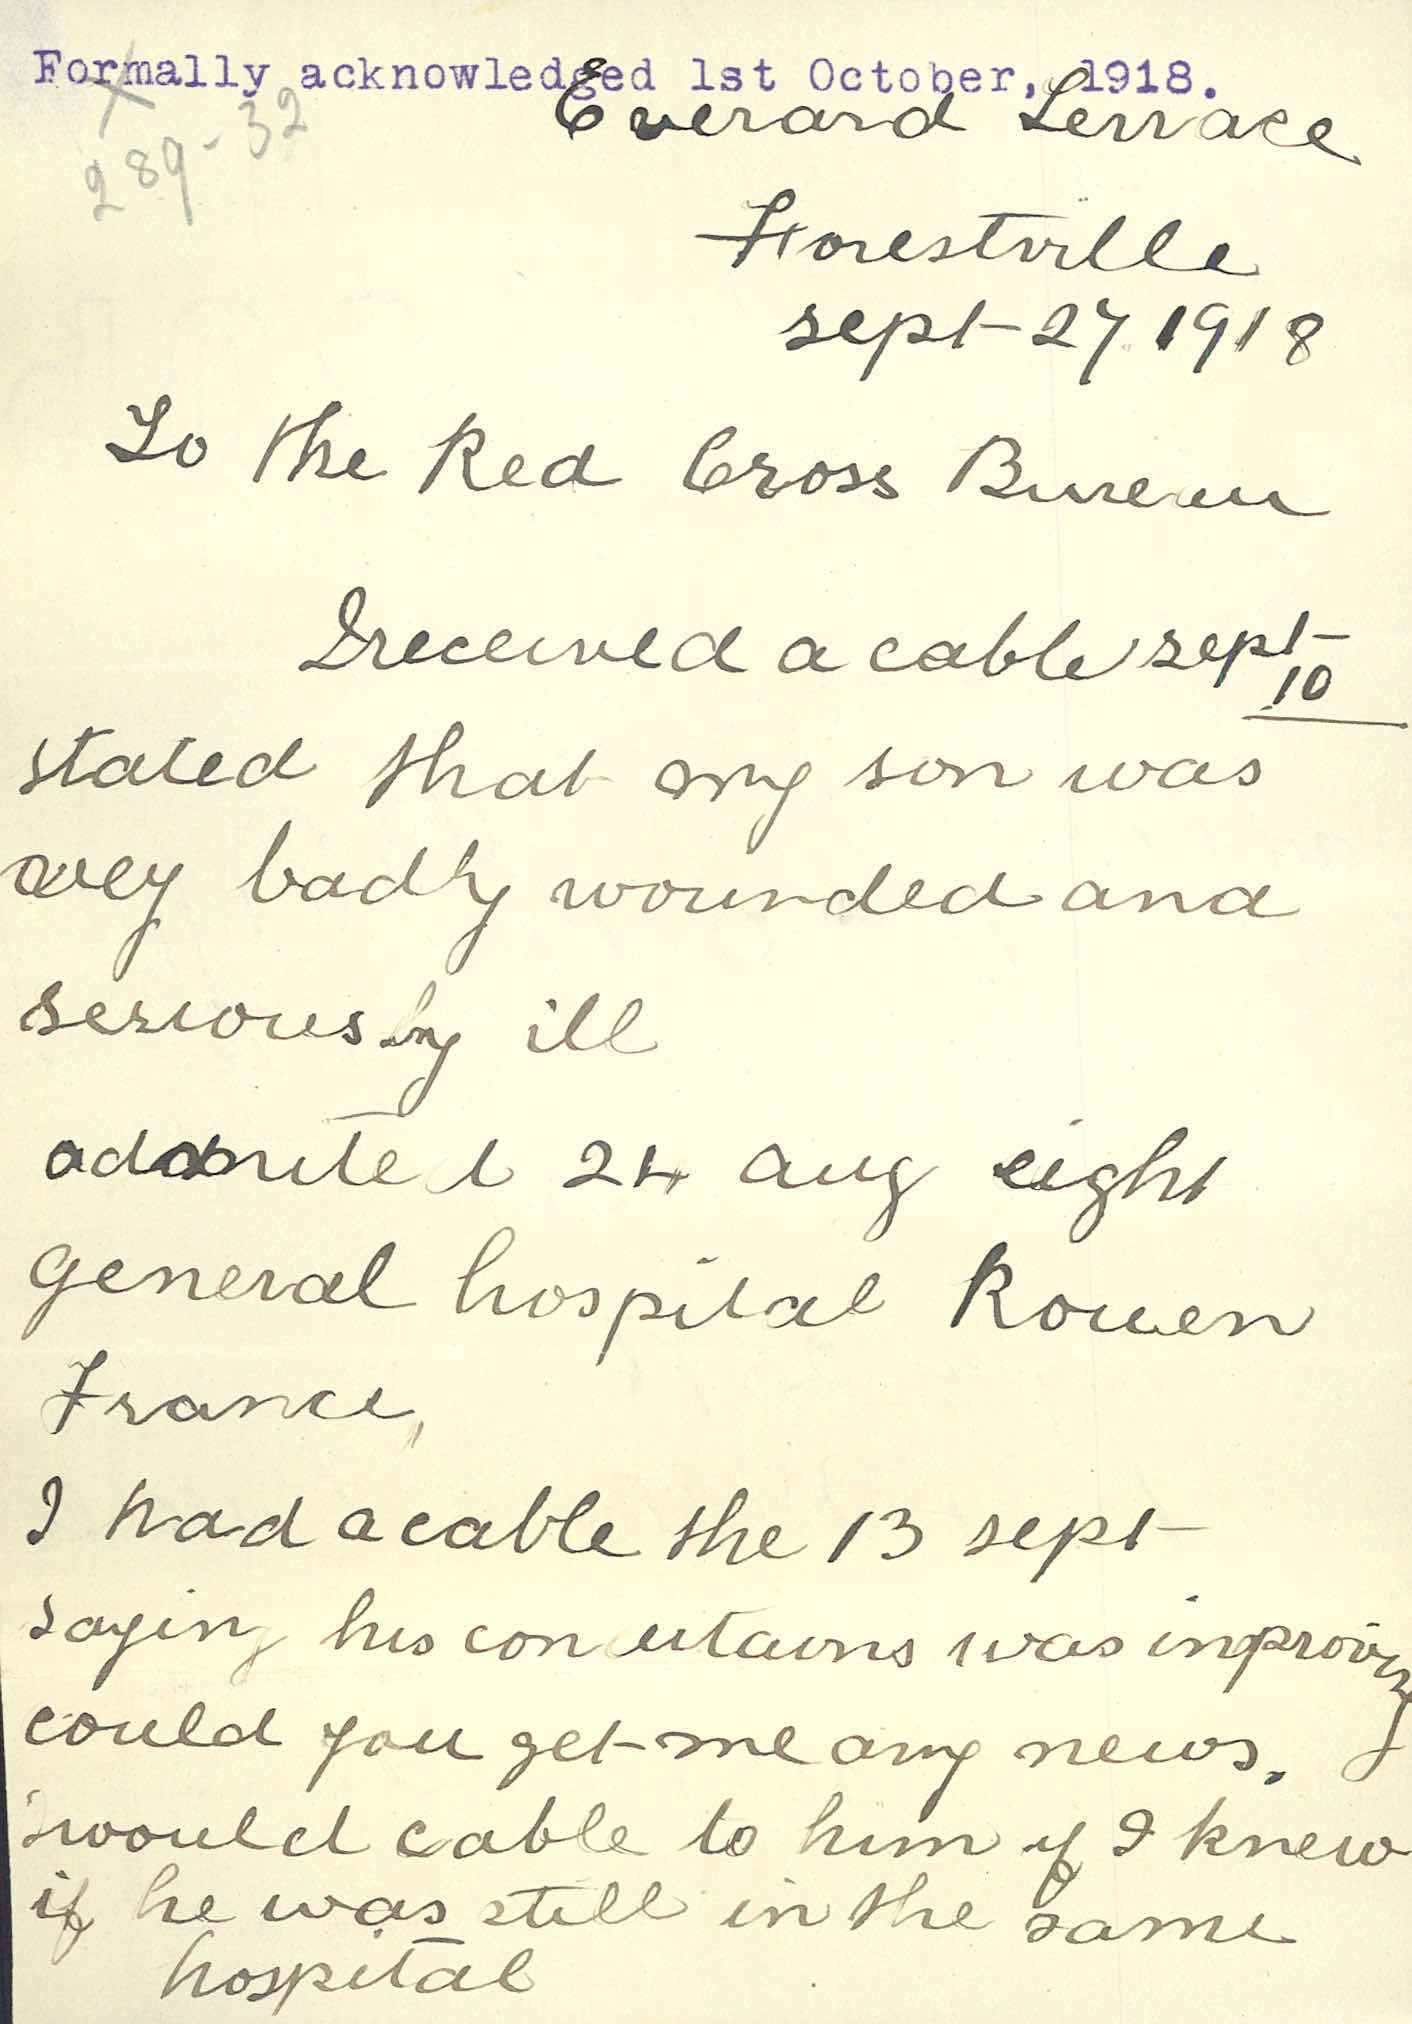 Formally acknowledged 1st October, 1918.
X
289-32
Everard Terrace
Forestville
sept 27 1918
To the Red Cross Bureau
I received a cable sept
10
stated that my son was
vey badly wounded and
seriously ill
admited 24 aug eight
General hospital Rouen
France,
I had a cable the 13 sept
saying his was inproving
could you get me any news.
I would cable to him if I knew
if he was still in the same
hospital